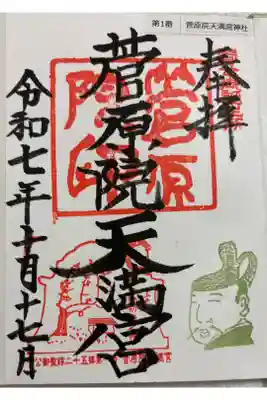 第1番 菅原院天満宮神社
奉拝
菅原院天満宮
令和七年十一月十七日
菅原
院印